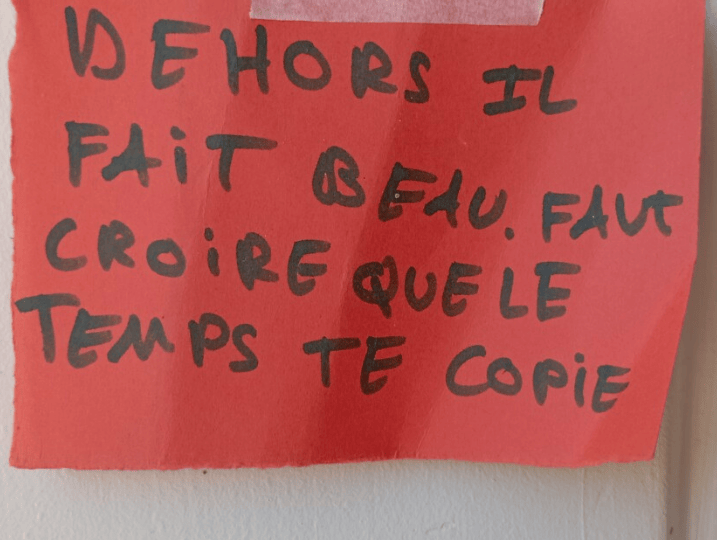 DEHORS IL
FAiT BEAU. FAUT
CROiRE QUE LE
TEMPS TE COPiE